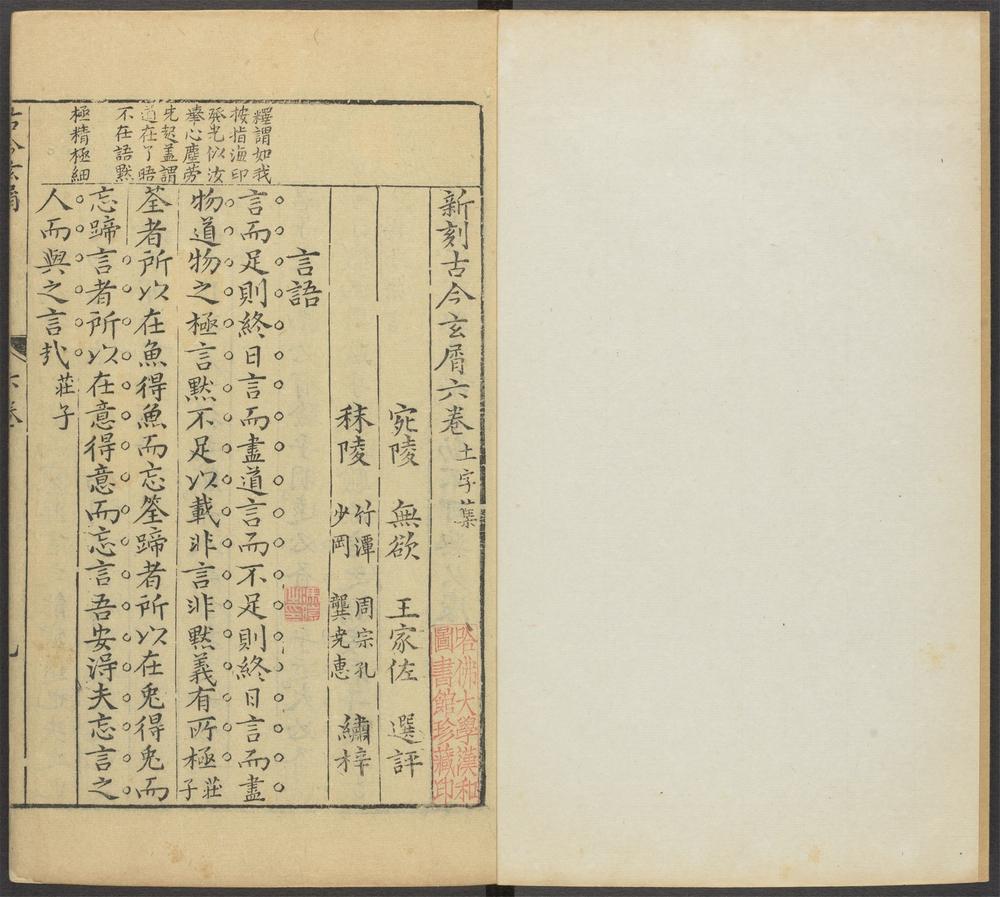 新刻古今玄屑六卷 土字集
宛陵 無欲 王家佐 選評
秣陵 竹潭 周宗孔 繡梓
少岡 龔堯惠
言語
言而足則終日言而盡道言而不足則終日言而盡
物道物之極言黙不足以載非言非黙義有所極 莊子
筌者所以在魚得魚而忘筌蹄者所以在兎得兎而
忘蹄言者所以在意得意而忘言吾安得夫忘言之
人而與之言㢤 莊子
釋謂如我
按指海印
發光似汝
舉心塵勞
先起蓋謂
道在了晤
不在語黙
極精極細
古今玄屑
六卷
哈佛大學漢和
圖書館珍藏印